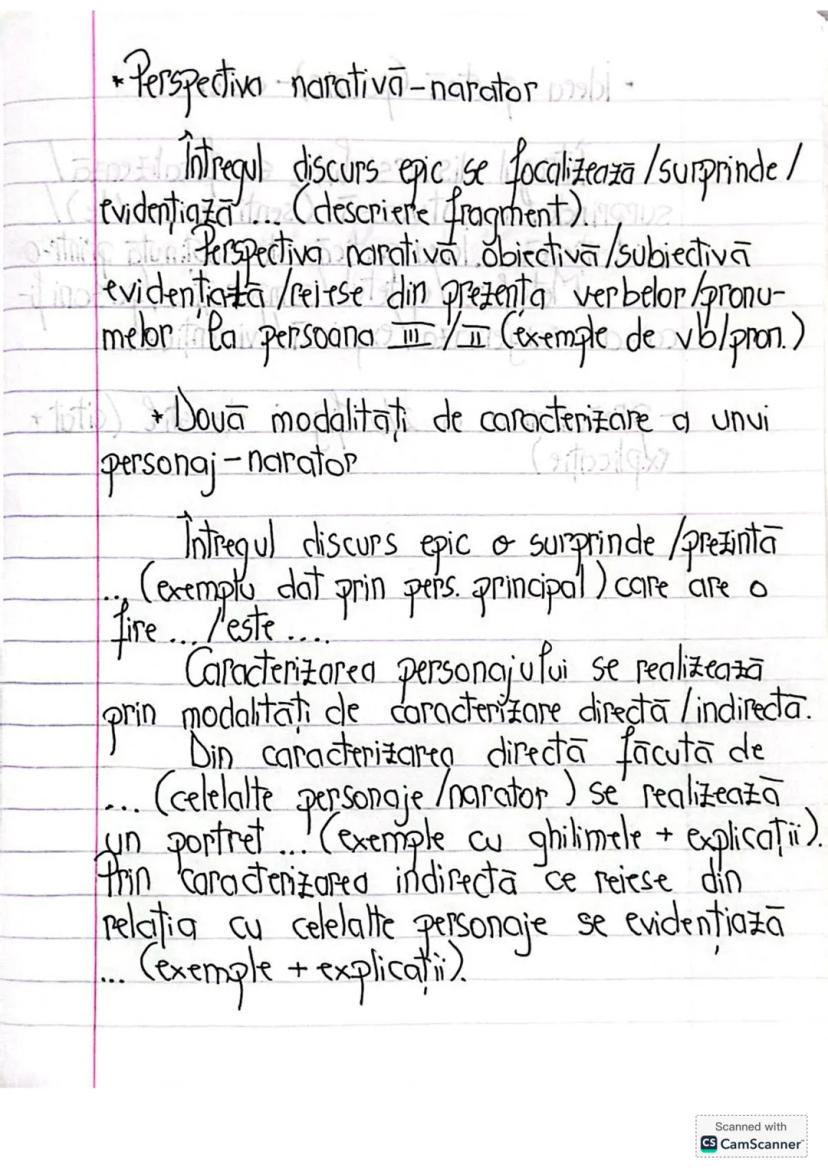 * Perspectiva narativă-narator
Întregul discurs epic se focalizează /surprinde /
evidențiază ... (descriere fragment).
Perspectiva narativă obiectivă/subiectivă
evidențiată /reiese din prezența verbelor/pronu-
melor la persoana III / II (exemple de vb/pron.)
* Două modalități de caracterizare a unui
personaj-narator
Întregul discurs epic o surprinde /prezintă
... (exemplu dat prin pers. principal) care are o
fire ... /este ....
Caracterizarea personajului se realizează
prin modalități de caracterizare directă /indirectă.
Din caracterizarea directă făcută de
... (celelalte personaje /narator ) se realizează
un portret ... (exemple cu ghilimele + explicații).
Prin caracterizarea indirectă ce reiese din
relația cu celelalte personaje se evidențiază
... (exemple + explicații).
Scanned with
CS CamScanner